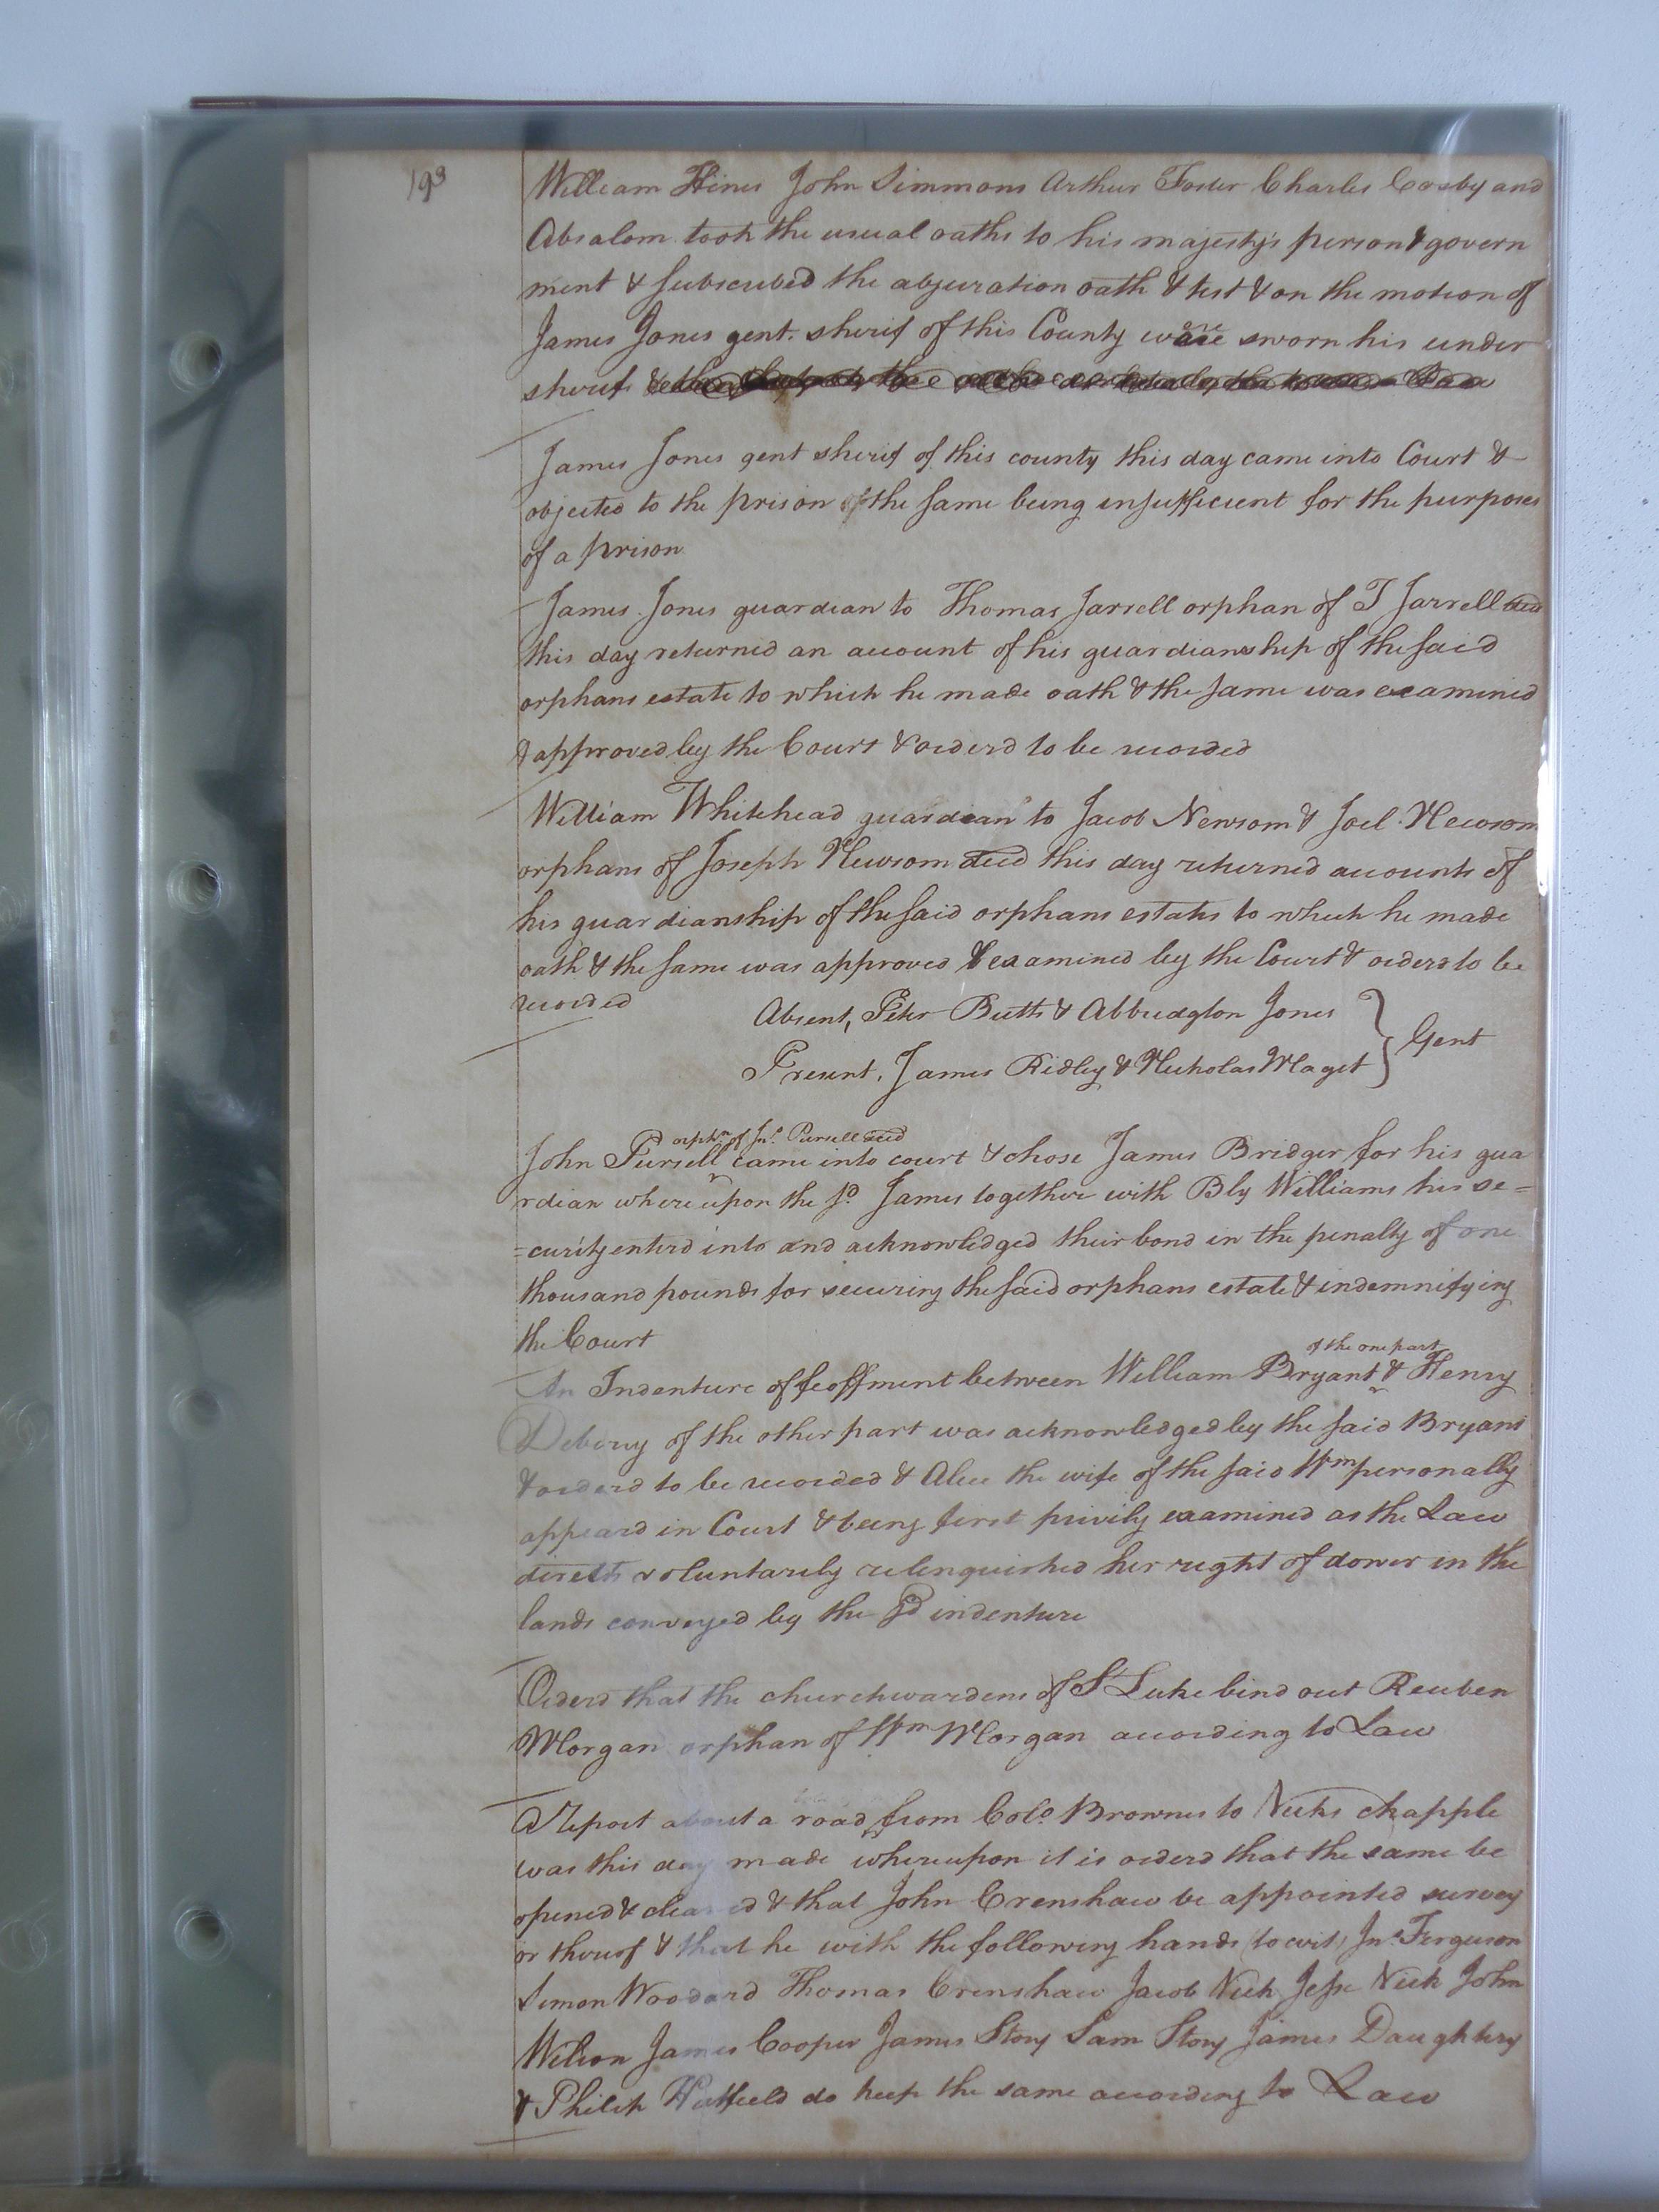 193
William Hines John Simmons Arthur Foster Charles Cosby and
Absalom took the usual oaths to his majesty's person & govern
ment & subscribed the abjuration oath & test & on the motion of
James Jones gent. sherif of this County were sworn his under
sherifs
James Jones gent sherif of this county this day came into Court &
objected to the prison of the same being insufficient for the purposes
of a prison
James Jones guardian to Thomas Jarrell orphan of T Jarrell decd
this day returned an account of his guardianship of the said
orphans estate to which he made oath & the same was examined
& approved by the Court & orderd to be recorded
William Whitehead guardian to Jacob Newsom & Joel Newsom
orphans of Joseph Newsom decd this day returned accounts of
his guardianship of the said orphans estates to which he made
oath & the same was approved & examined by the Court & orderd to be
recorded
Absent, Peter Butts & Albridgton Jones
Present, James Ridley & Nicholas Maget } Gent
orphn of Jno. Pursell decd
John Pursell came into court & chose James Bridger for his gua
rdian where upon the sd. James together with Bly Williams his se=
=curity enterd into and acknowledged their bond in the penalty of one
thousand pounds for securing the said orphans estate & indemnifying
the Court
of the one part
An Indenture of feoffment between William Bryant & Henry
Debery of the other part was acknowledged by the said Bryant
& orderd to be recorded & Alice the wife of the said Wm personally
appeard in Court & being first privily examined as the Law
directs voluntarily relinquished her right of dower in the
lands conveyed by the sd indenture
Orderd that the churchwardens of St Luke bind out Reuben
Morgan orphan of Wm Morgan according to Law
A Report about a road from Colo. Brownes to Nicks chapple
was this day made whereupon it is orderd that the same be
opened & cleared & that John Crenshaw be appointed survey
or thereof & that he with the following hands (to wit) Jno. Ferguson
Simon Woodard Thomas Crenshaw Jacob Nick Jesse Nick John
Wilson James Cooper James Story Sam Story James Daughtery
& Philip Hatfield do keep the same according to Law